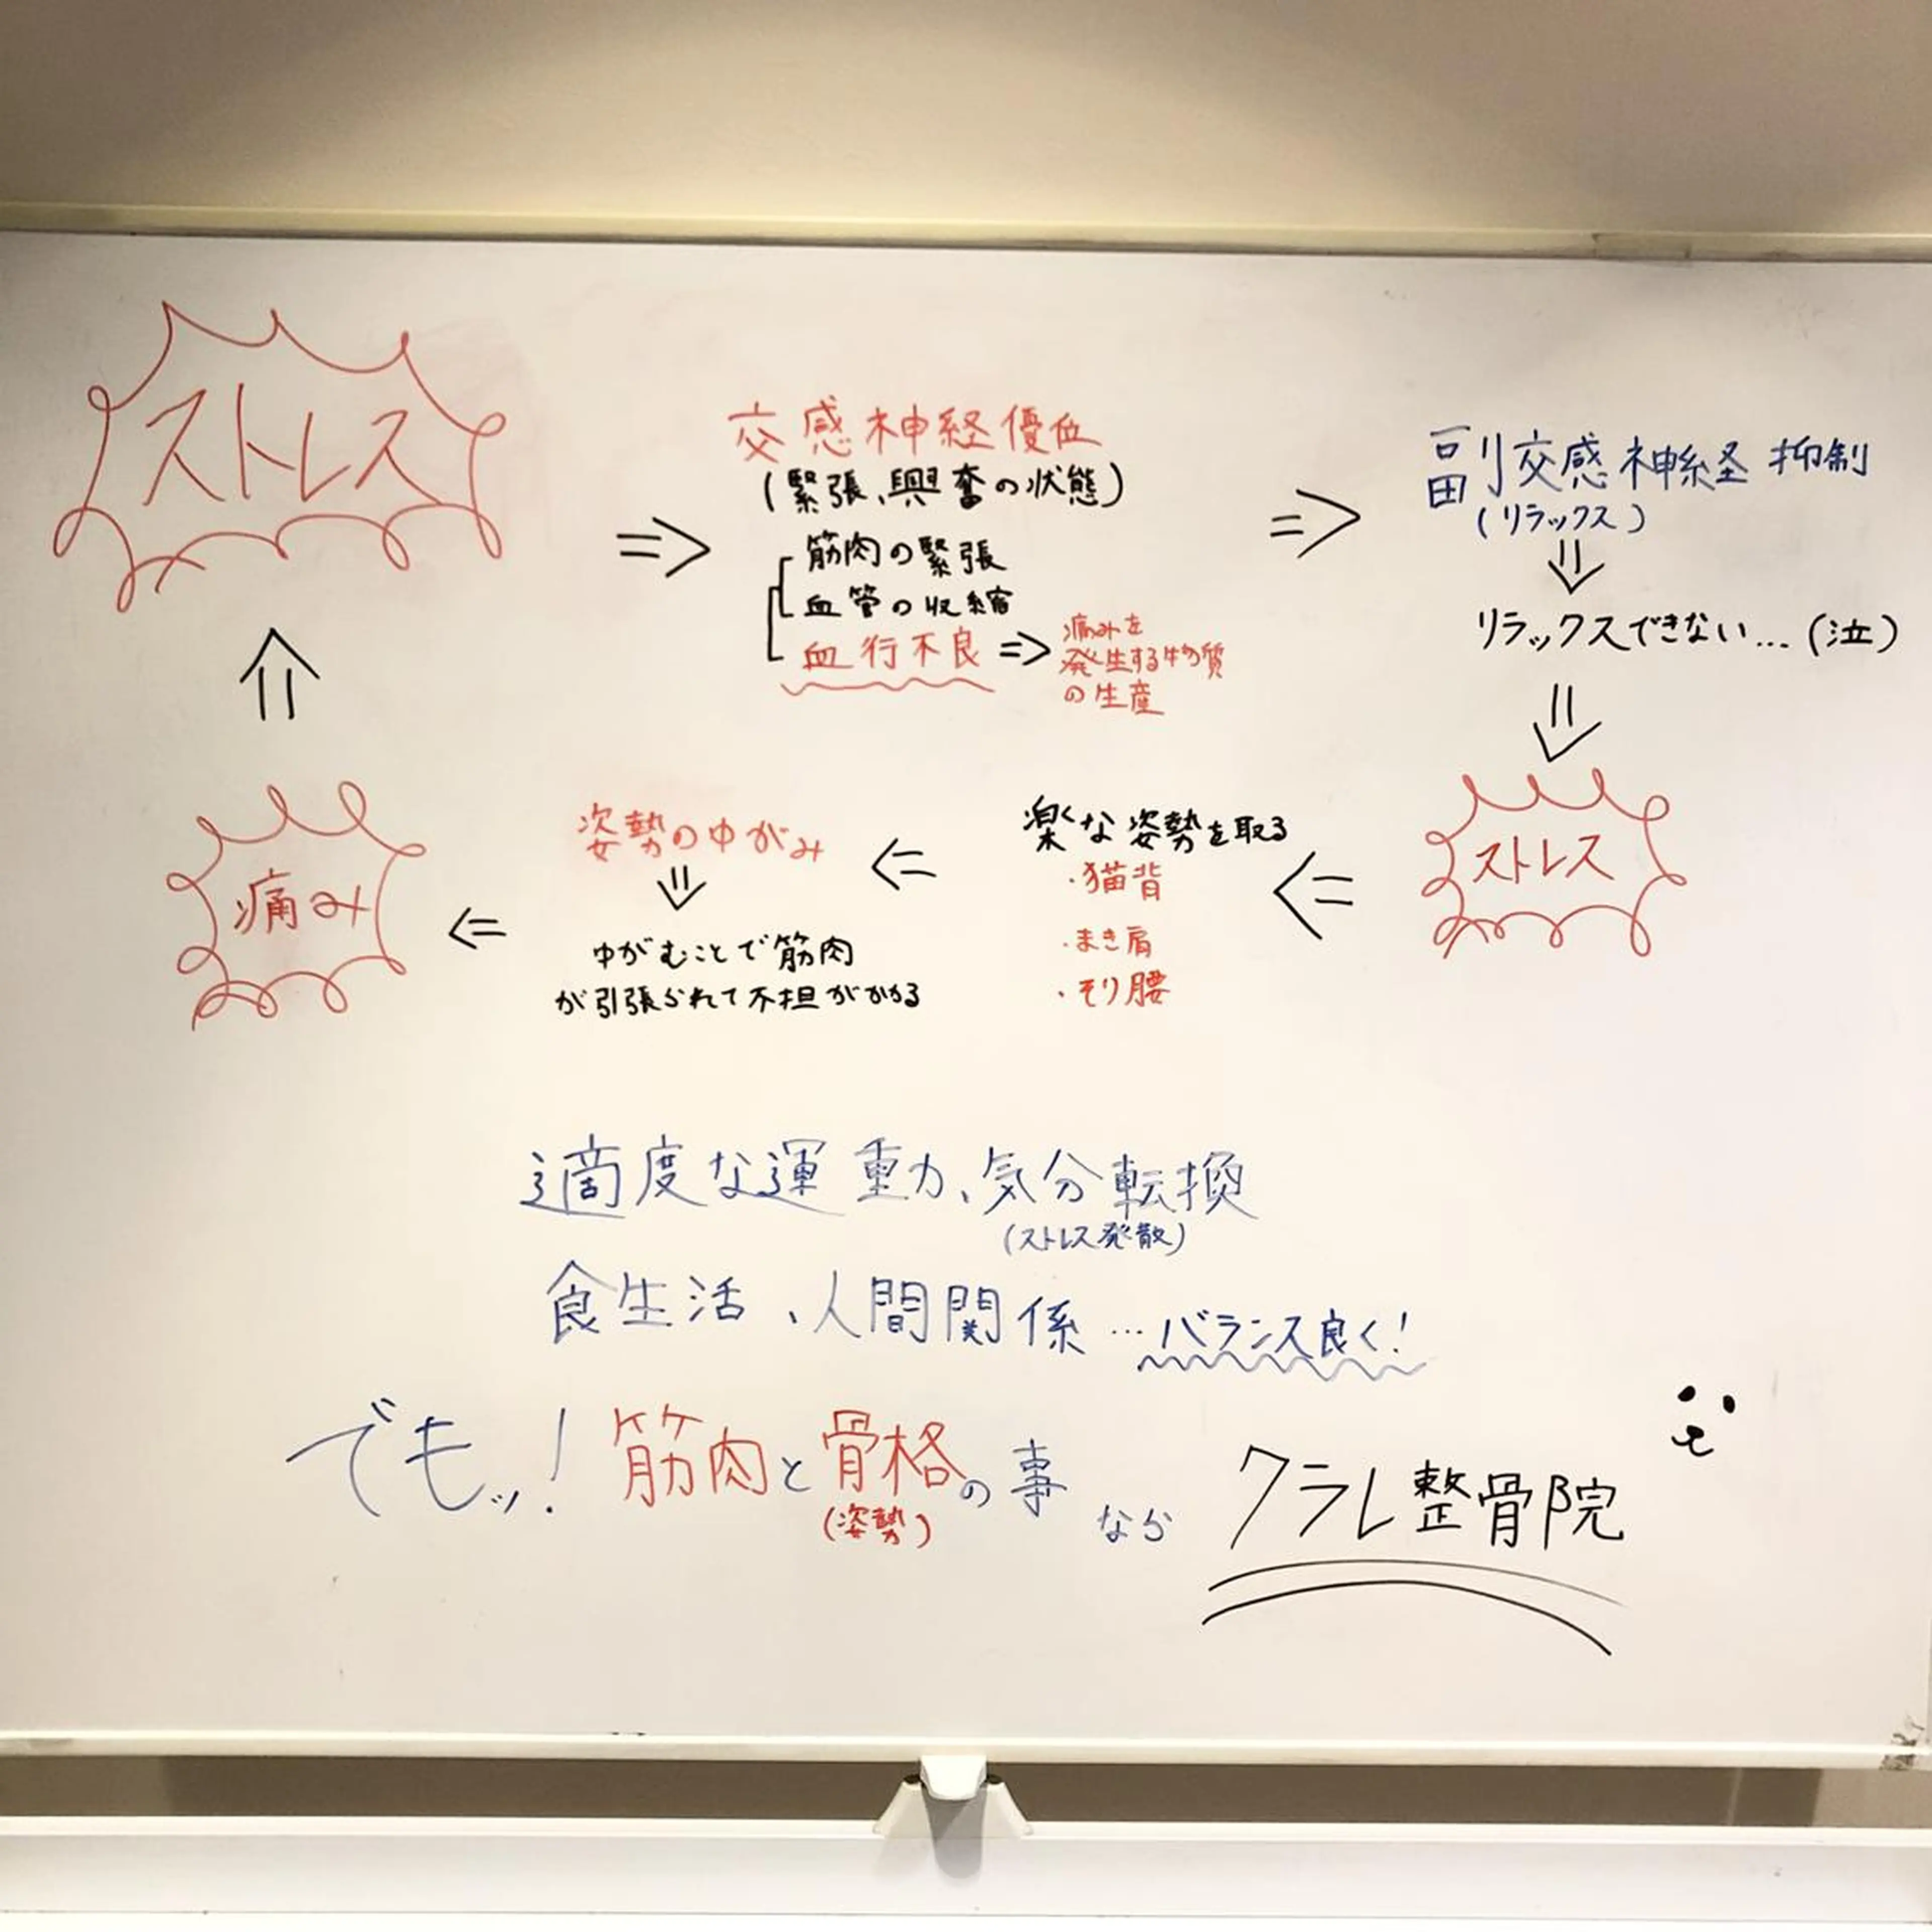 ストレス
⇒
交感神経優位
(緊張、興奮の状態)
筋肉の緊張
血管の収縮
血行不良 ⇒ 痛みを
発生する物質
の生産
⇒
副交感神経 抑制
(リラックス)
⇓
リラックスできない…(泣)
⇓
ストレス
⇐
楽くな姿勢を取る
・猫背
・まき肩
・そり腰
⇐
姿勢のゆがみ
⇓
ゆがむことで筋肉
が引張られて不担がかかる
⇐
痛み
⇑
適度な運動、気分転換
(ストレス発散)
食生活、人間関係…バランス良く!
でもッ!筋肉と骨格の事なら クラレ整骨院
(姿勢)